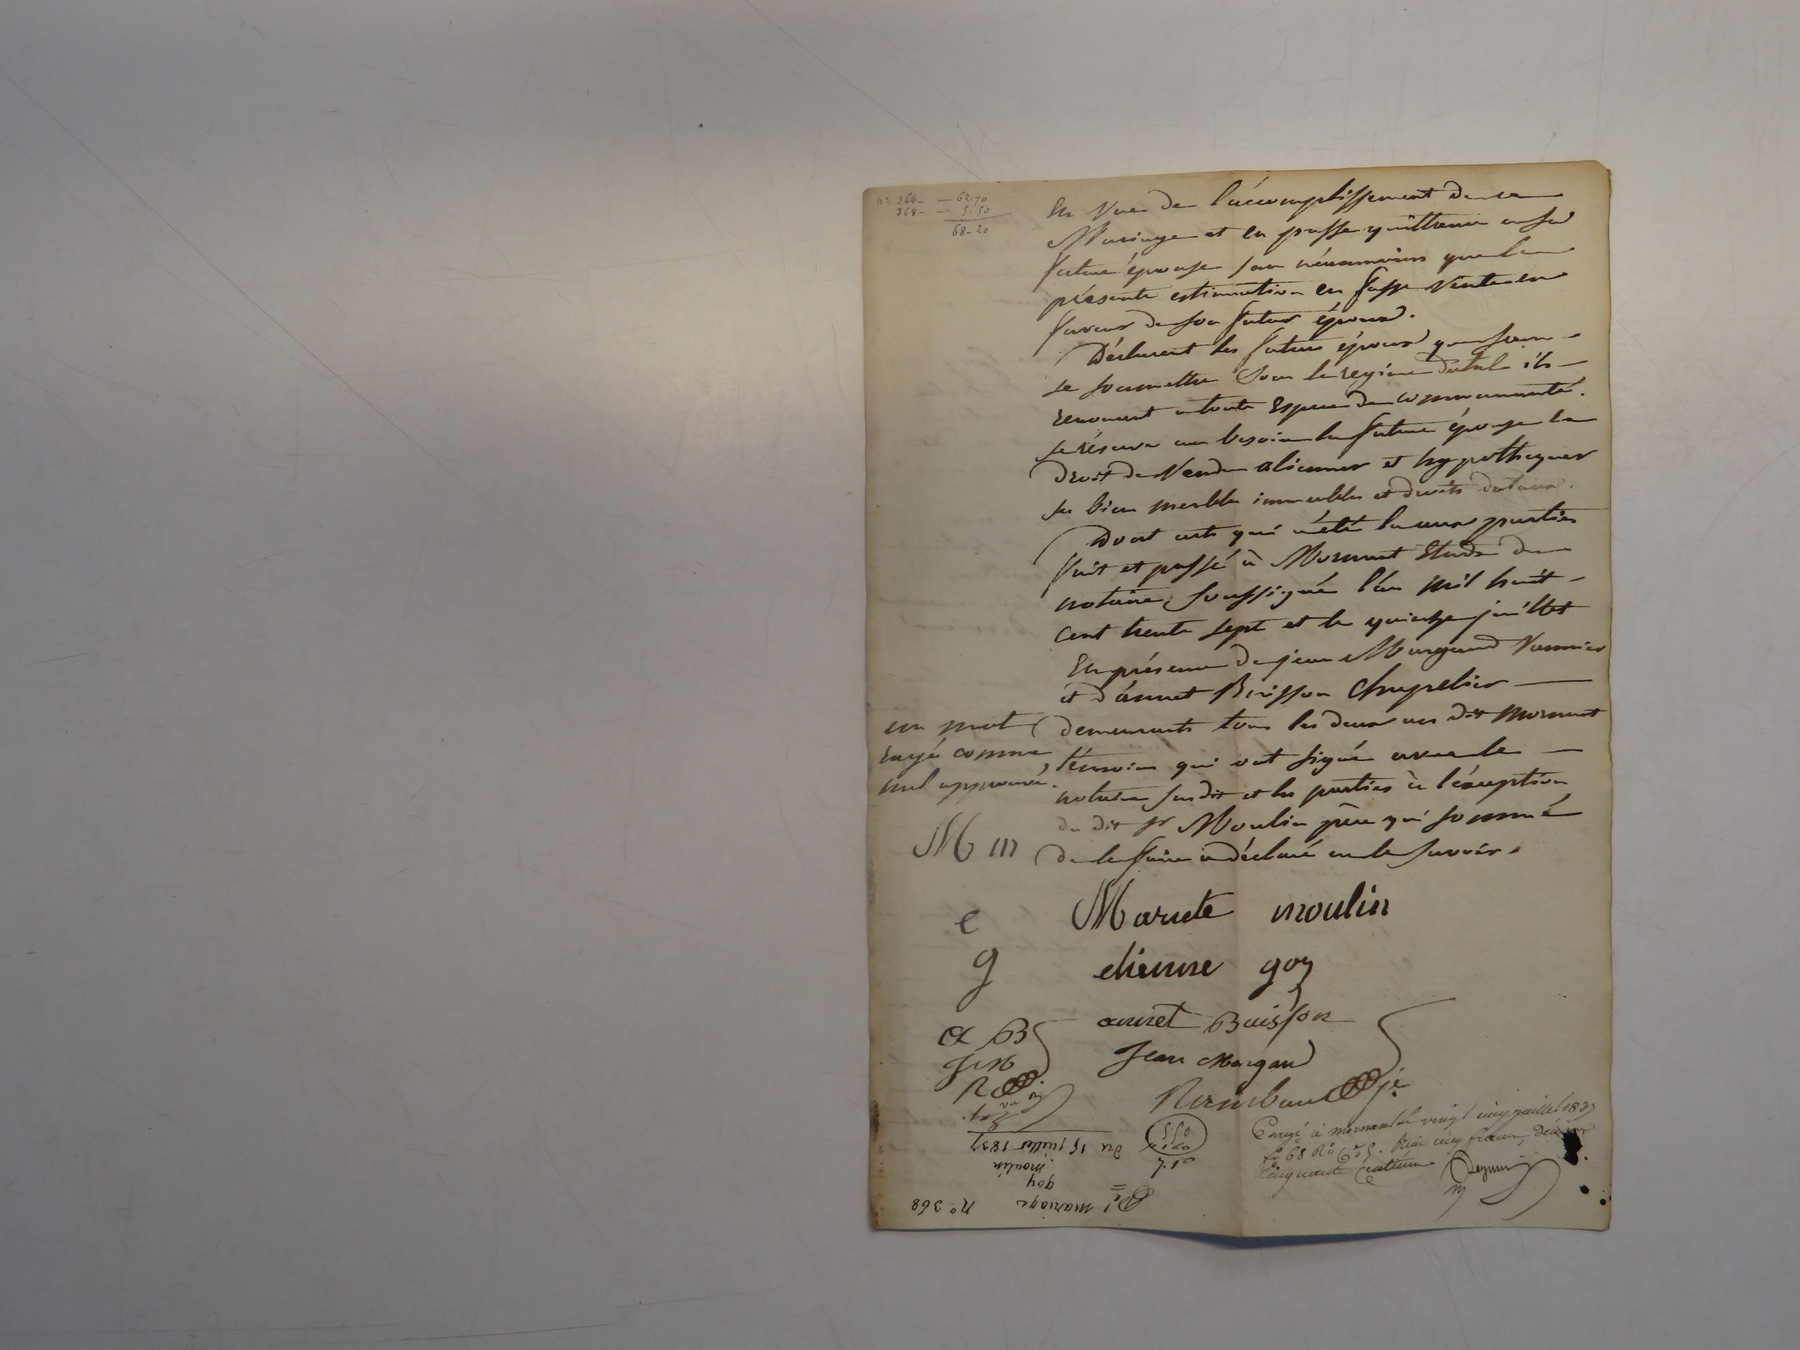 nos 364 — 62.70
368 — 5.50
68-20
En vue de l'accomplissement de ce
Mariage et en passe quittance a sa
future épouse sans néanmoins que la
présente estimation en fasse vente en
faveur de son futur époux.
Déclarent les futurs époux que sans
se soumettre sous le regime dotal ils
renoncent a toute Espece de communauté.
se réserve au besoin la future épouse le
droit de Vendre aliener et hypothequer
ses bien meubles immeubles et droits dotaux.
Dont acte qui a été lu aux parties
fait et passé à Mornant Etude du
notaire soussigné l'an mil huit
cent trente sept et le quinze juillet
En présence de jean Margand Vannier
et d'annet Buisson Chapelier
demeurants tous les deux au dit mornant
témoins qui ont signé avec le
notaire susdit et les parties à l'éxception
du dit sr Moulin père qui sommé
de le faire a déclaré ne le savoir.
un mot
rayé comme
nul approuvé.
M m
Mariete moulin
e
g
etienne goy
a B
annet Buisson
J M
Jean Margand
R
Enregé à mornant le vingt cinq juillet 1837
fo 68 Ro Reçu cinq francs, Décime
Cinquante centimes
5.50
1.60
7.10
No. 368
mariage
goy
moulin
Du 15 juillet 1837